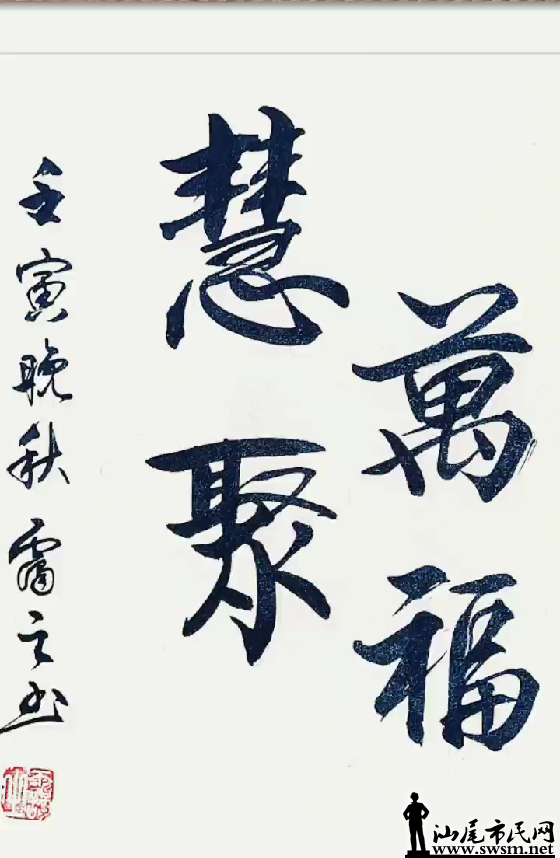 萬福
慧聚
壬寅晚秋 书
汕尾市民网
www.swsm.net